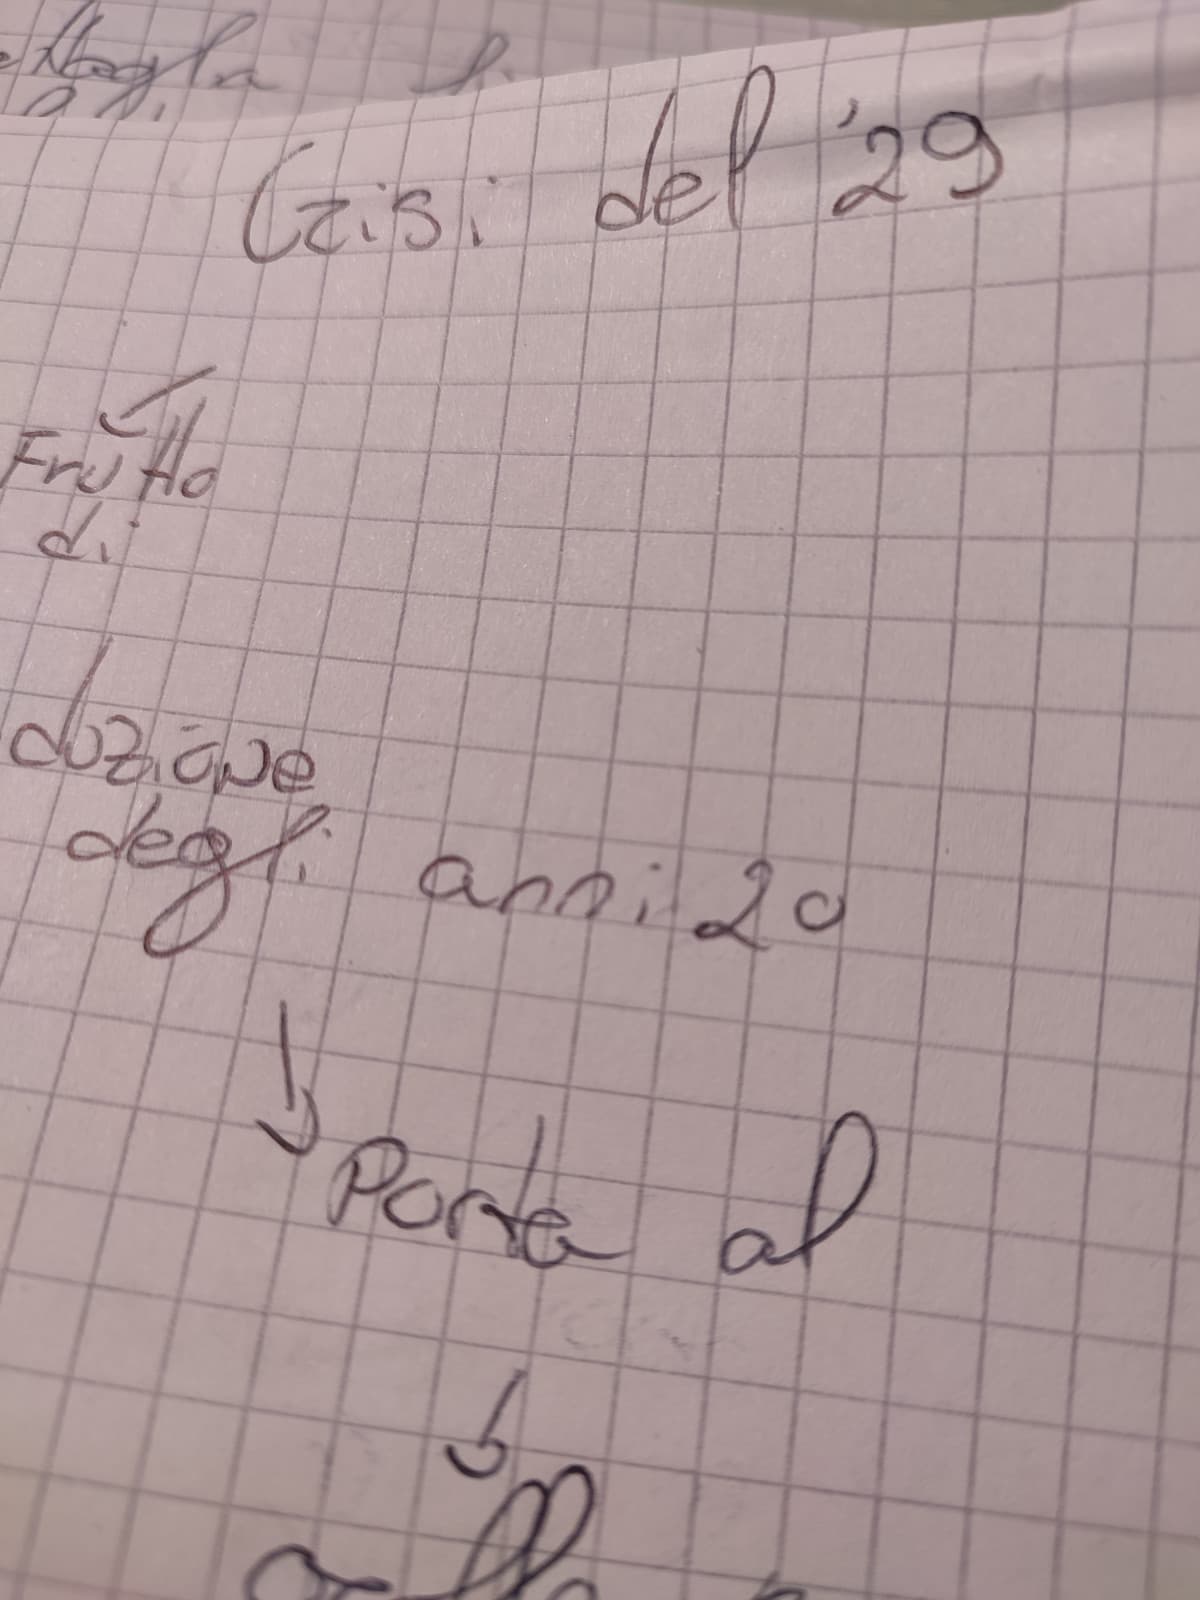 Crisi del '29
Frutto
di
duzione
degli anni 20
Porta al